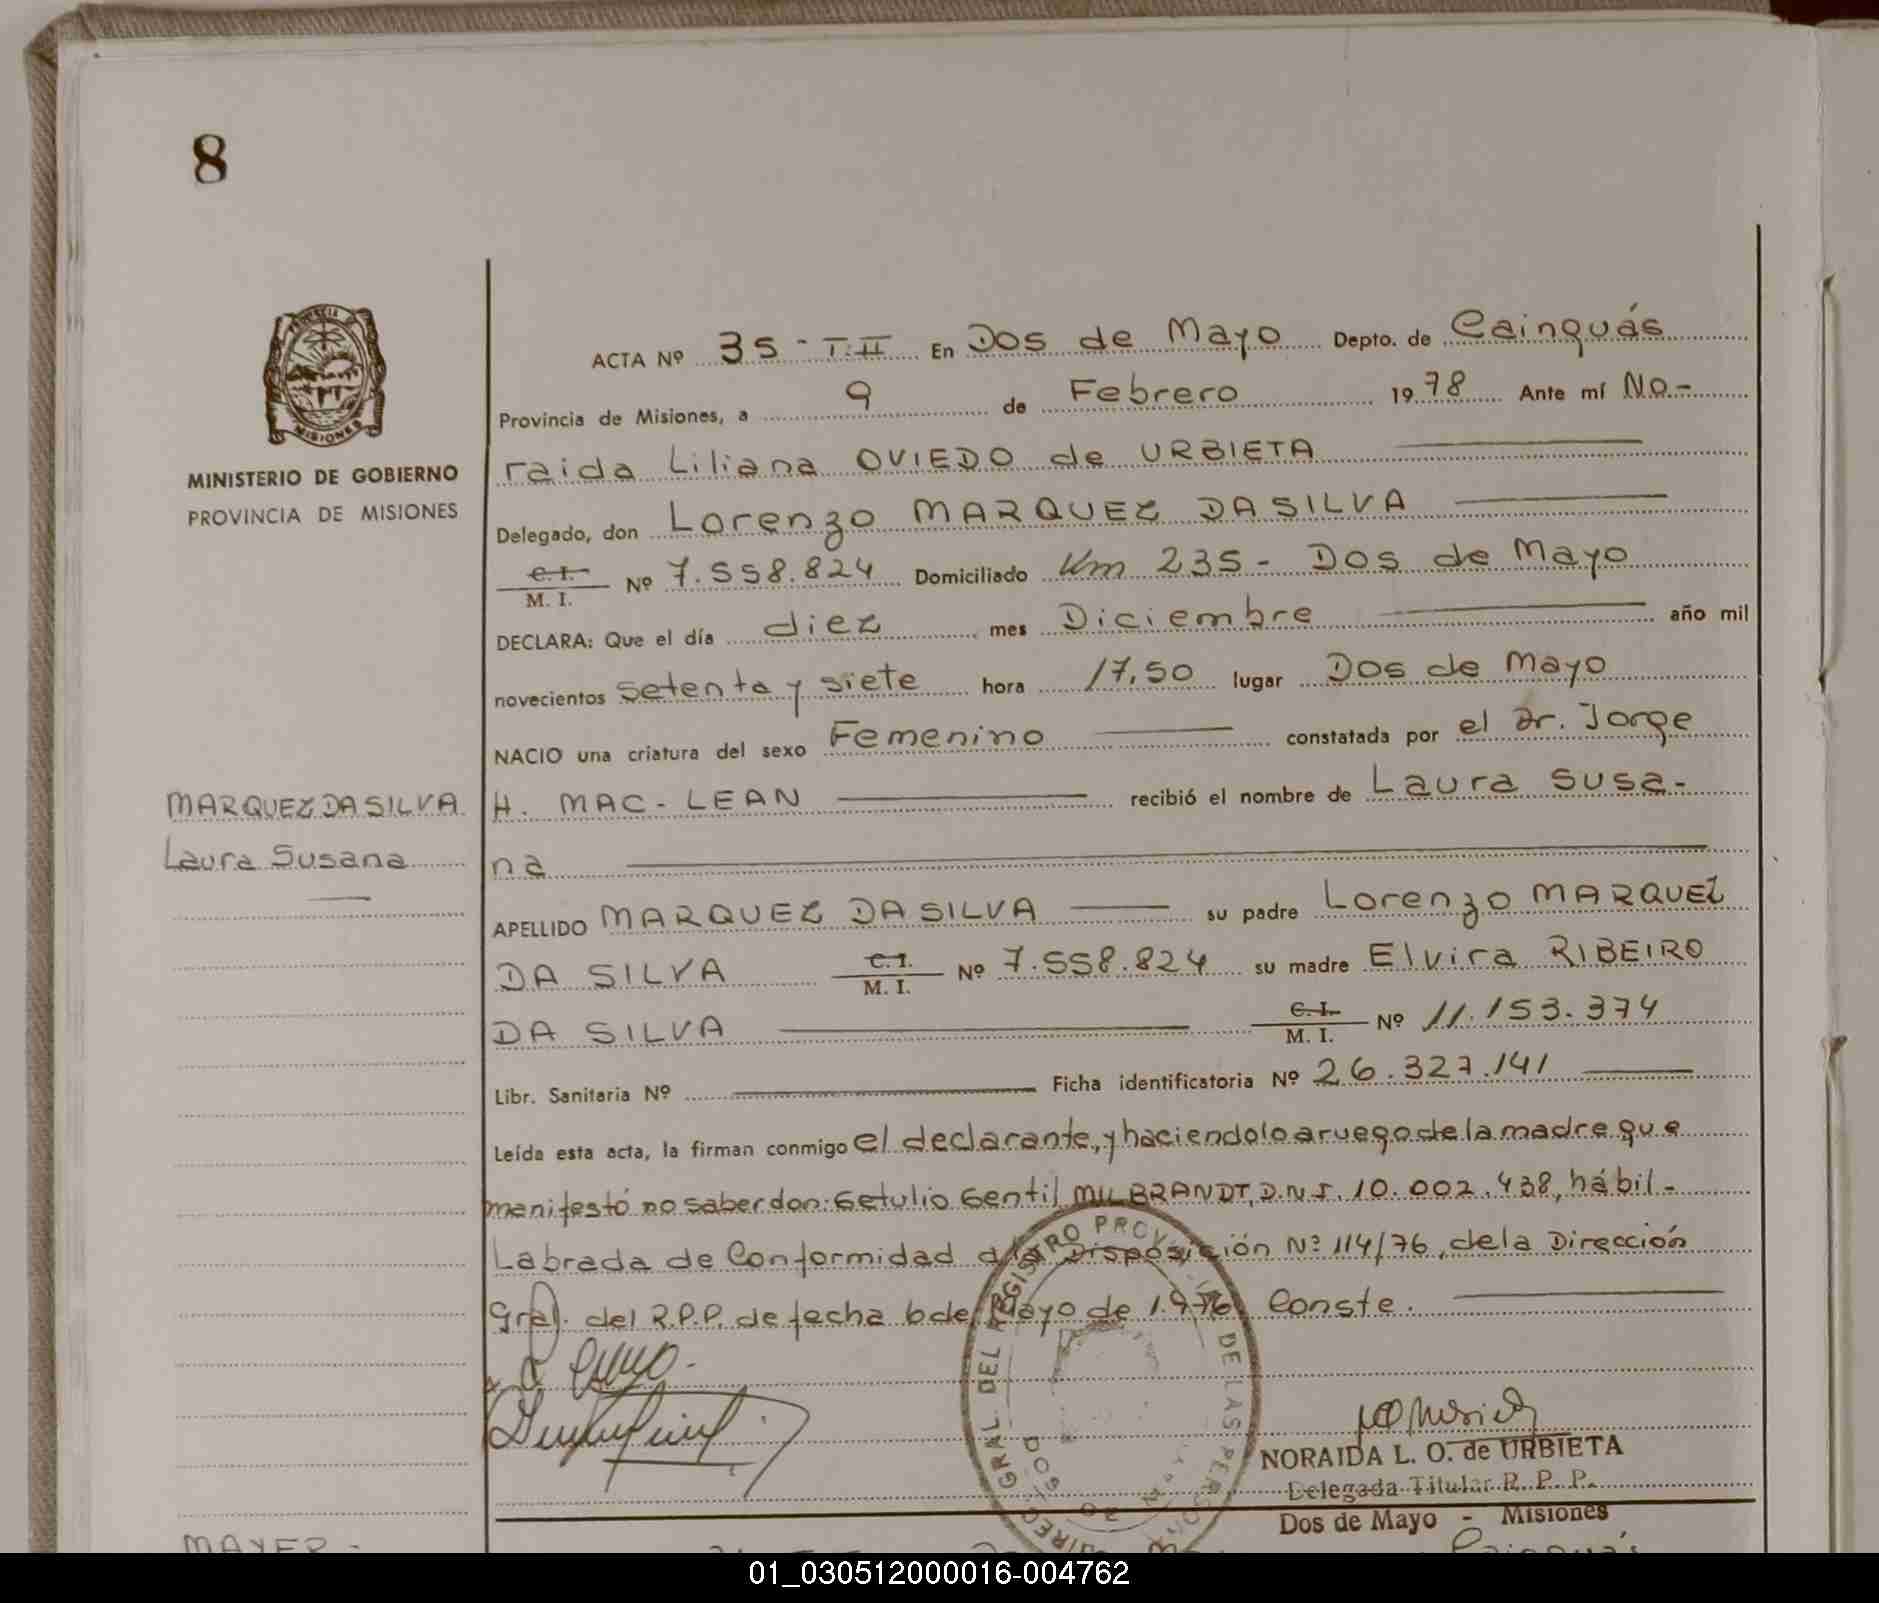 8
MINISTERIO DE GOBIERNO
PROVINCIA DE MISIONES
ACTA Nº 35 - T.II En Dos de Mayo Depto. de Cainguás
Provincia de Misiones, a 9 de Febrero 1978 Ante mí No.-
raida Liliana OVIEDO de URBIETA
Delegado, don Lorenzo MARQUEZ DA SILVA
C. I. M. I. Nº 7.558.824 Domiciliado Km 235 - Dos de Mayo
DECLARA: Que el día diez mes Diciembre año mil
novecientos setenta y siete hora 17,50 lugar Dos de Mayo
NACIO una criatura del sexo Femenino constatada por el Dr. Jorge
MARQUEZ DA SILVA
Laura Susana
H. MAC-LEAN recibió el nombre de Laura Susa-
na
APELLIDO MARQUEZ DA SILVA su padre Lorenzo MARQUEZ
DA SILVA C. I. M. I. Nº 7.558.824 su madre Elvira RIBEIRO
DA SILVA C. I. M. I. Nº 11.153.374
Libr. Sanitaria Nº Ficha identificatoria Nº 26.327.141
Leída esta acta, la firman conmigo el declarante, y haciendolo a ruego de la madre que
manifestó no saber don: Getulio Gentil MILBRANDT, D.N.I. 10.002.438, hábil-
Labrada de Conformidad a la Disposición Nº 114/76, de la Dirección
Gral. del R.P.P. de fecha 6 de Mayo de 1.976. Conste.
GRAL. DEL REGISTRO PROVINCIAL DE LAS PERSONAS
NORAIDA L. O. de URBIETA
Delegada Titular R. P. P.
Dos de Mayo - Misiones
MAYER -
01_030512000016-004762